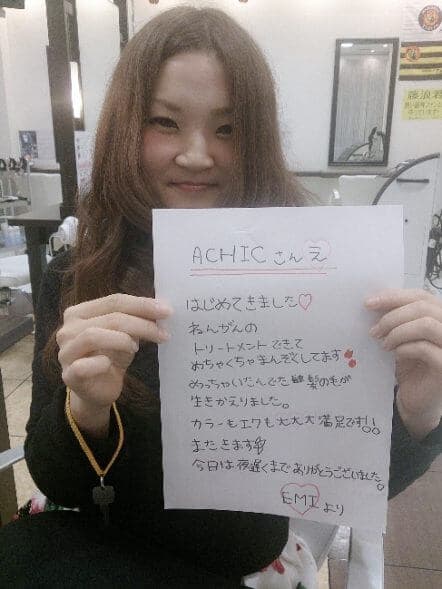 ACHICさんえ
はじめてきました♡
ねんがんの
トリートメントできて
めちゃくちゃまんぞくしてます
めっちゃいたんでた髪の毛が
生きかえりました。
カラーもエクも大大大満足です!!
またきます
今日は夜遅くまでありがとうございました。
EMIより
藤浪君